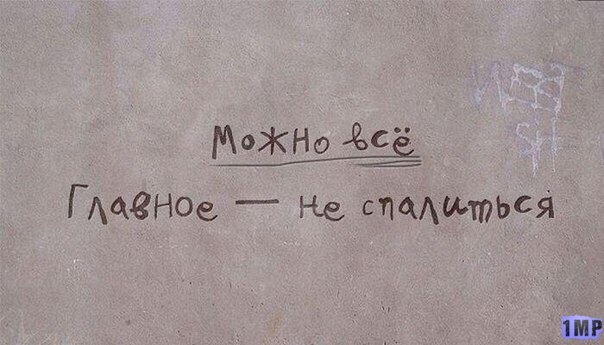 Можно всё
Главное — не спалиться
1MP